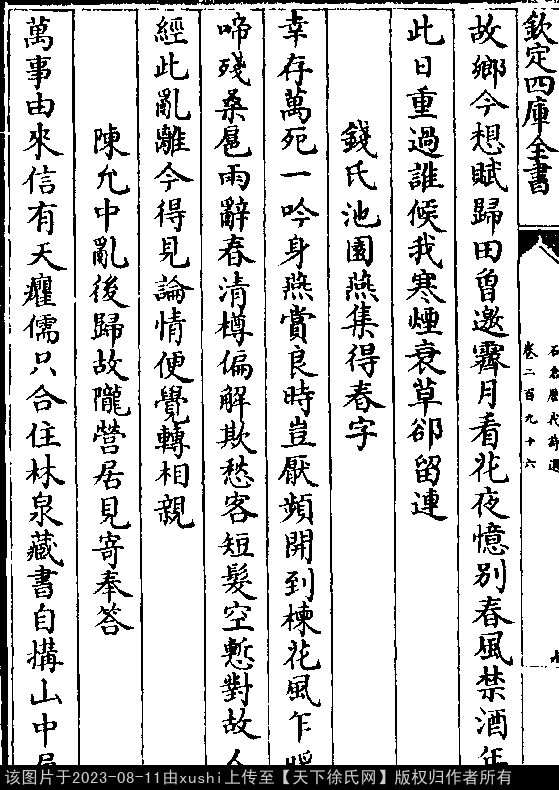 欽定四庫全書
石倉歷代詩選
卷二百九十六
故鄉今想賦歸田曾邀霽月看花夜憶別春風禁酒年
此日重過誰候我寒煙衰草卻留連
錢氏池園燕集得春字
幸存萬死一吟身燕賞良時豈厭頻開到楝花風乍暖
啼殘桑扈雨辭春清樽偏解欺愁客短髮空慙對故人
經此亂離今得見論情便覺轉相親
陳允中亂後歸故隴營居見寄奉答
萬事由來信有天癯儒只合住林泉藏書自搆山中
该图片于2023-08-11由xushi上传至【天下徐氏网】版权归作者所有